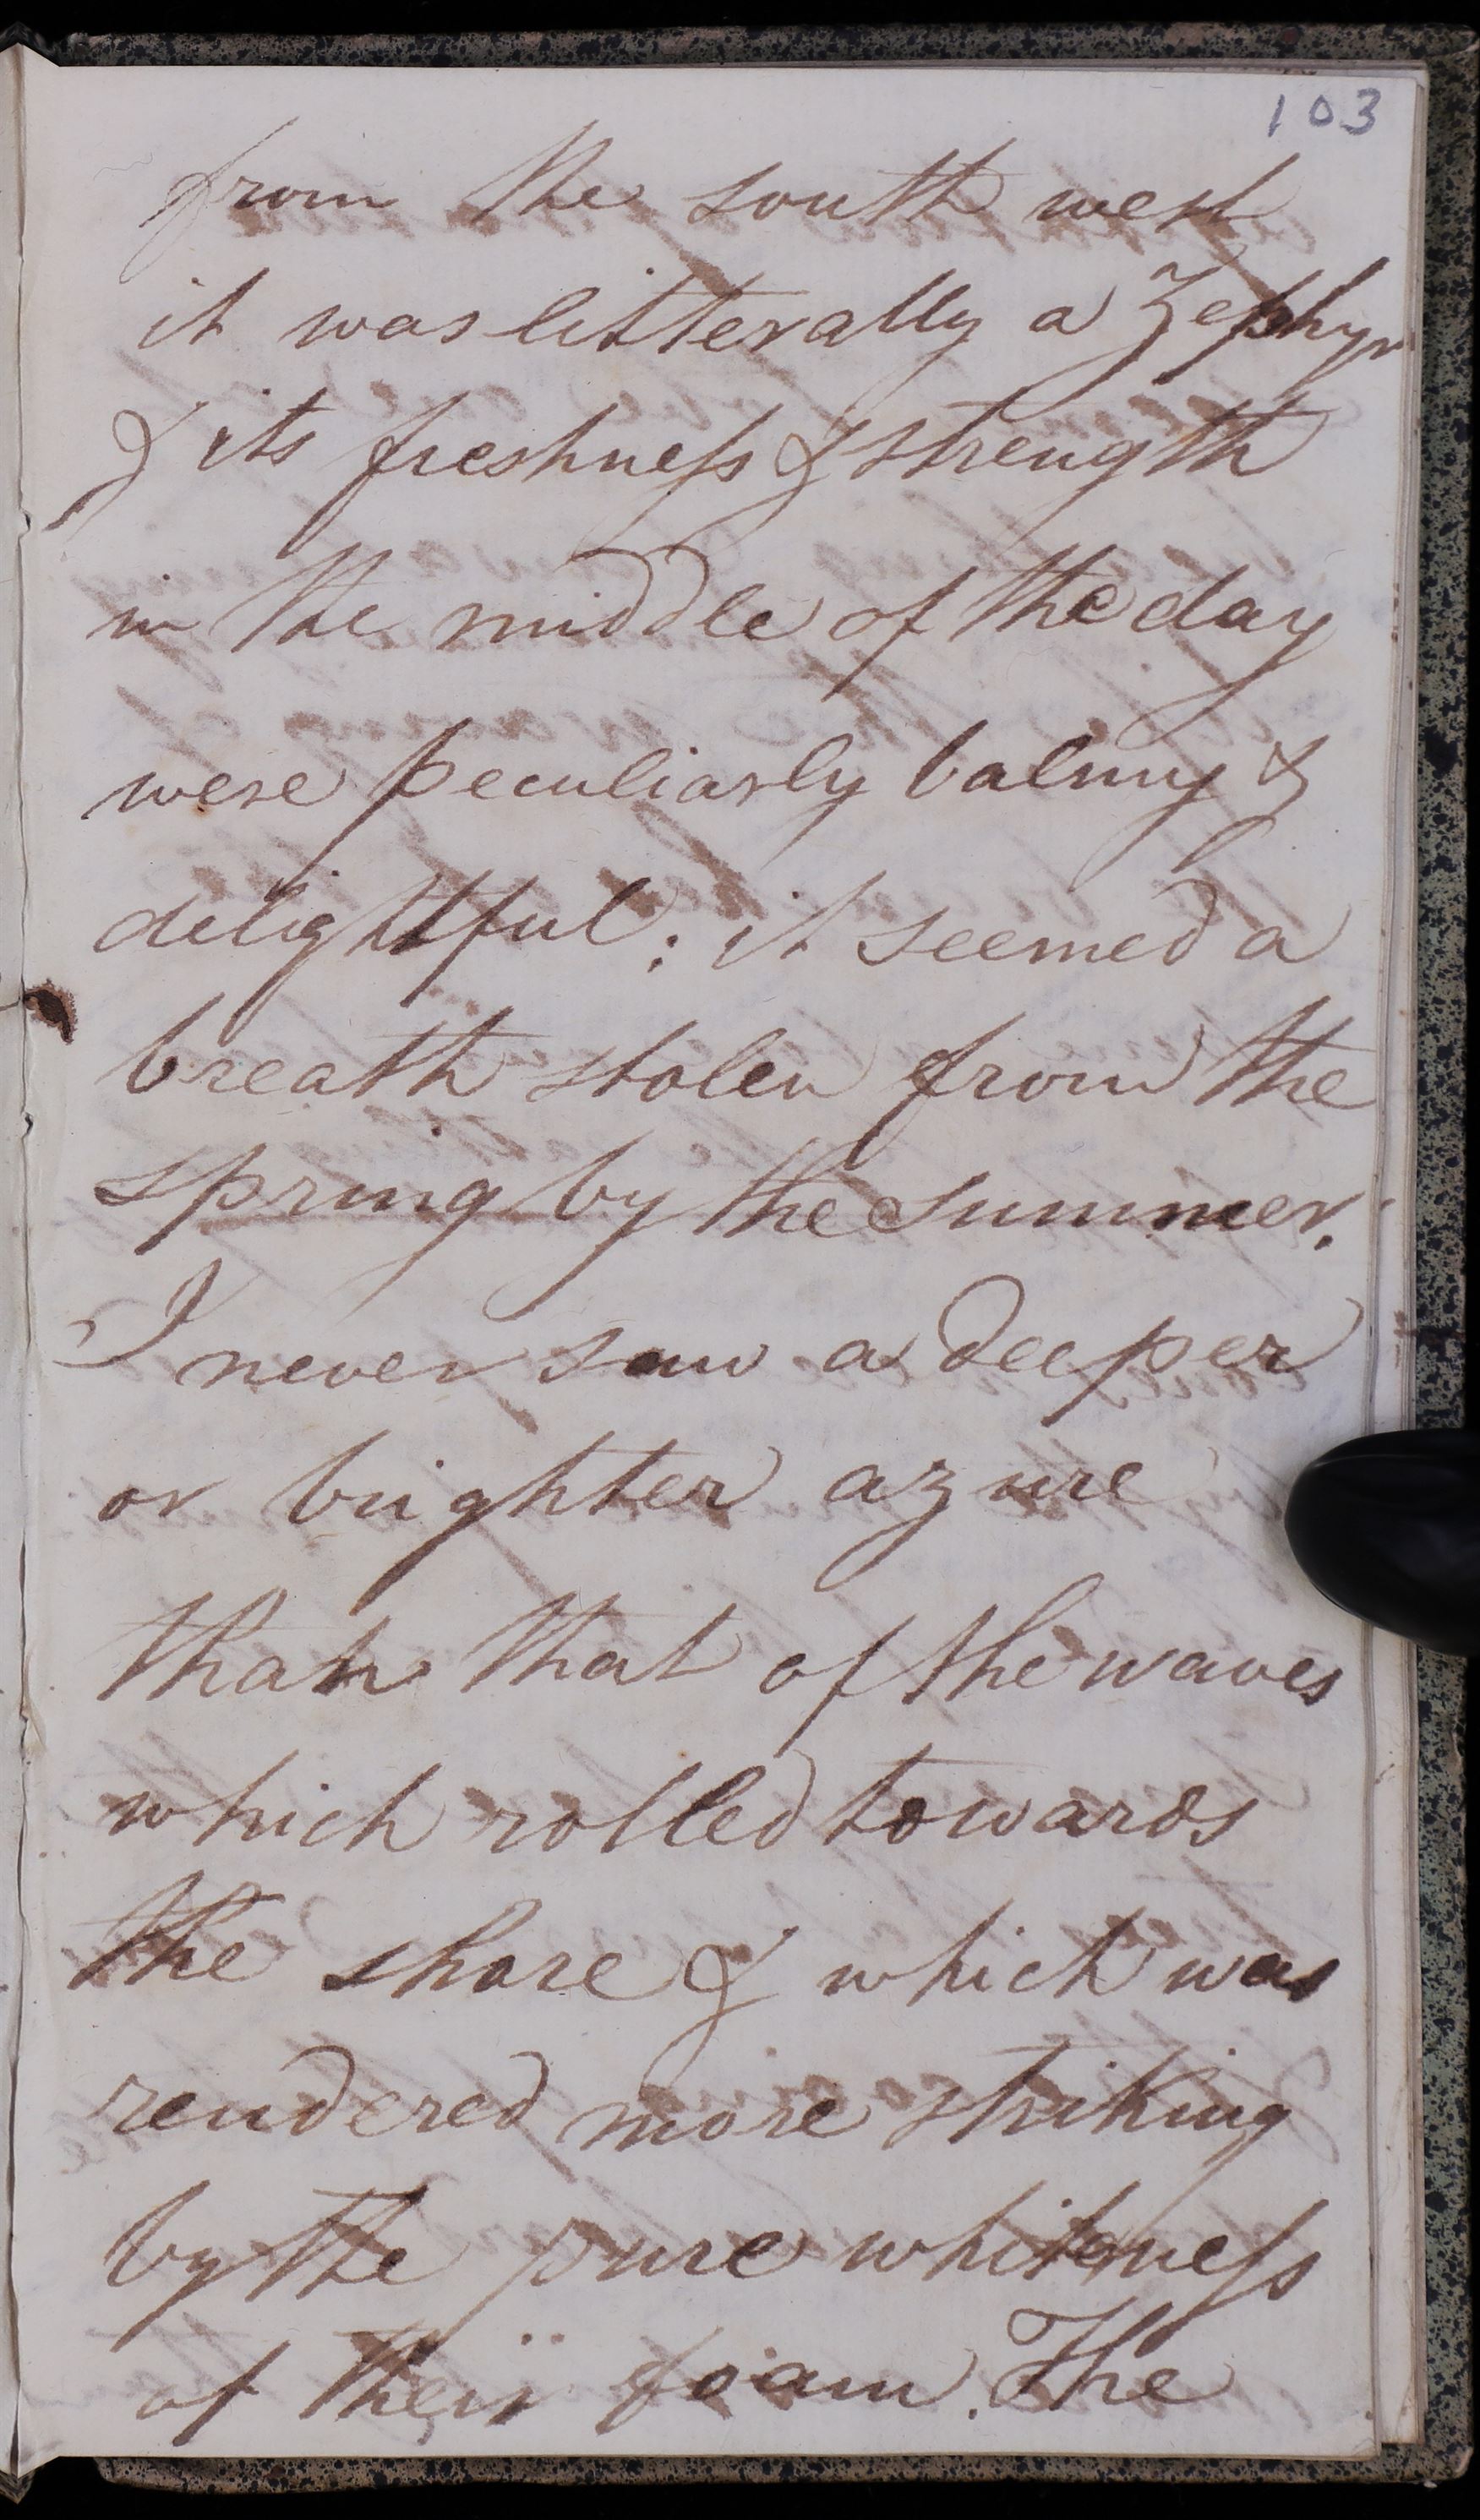 103
from the south west
it was litterally a Zephyr
& its freshness & strength
in the middle of the day
were peculiarly balmy &
delightful: it seemed a
breath stolen from the
spring by the summer.
I never saw a deeper
or brighter azure
than that of the waves
which rolled towards
the shore & which was
rendered more striking
by the pure whiteness
of their foam. The